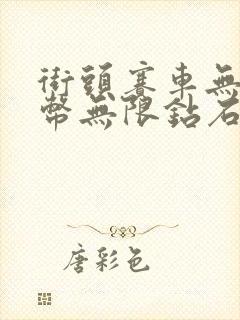 街頭賽車無
幣無限鉆石
唐彩色